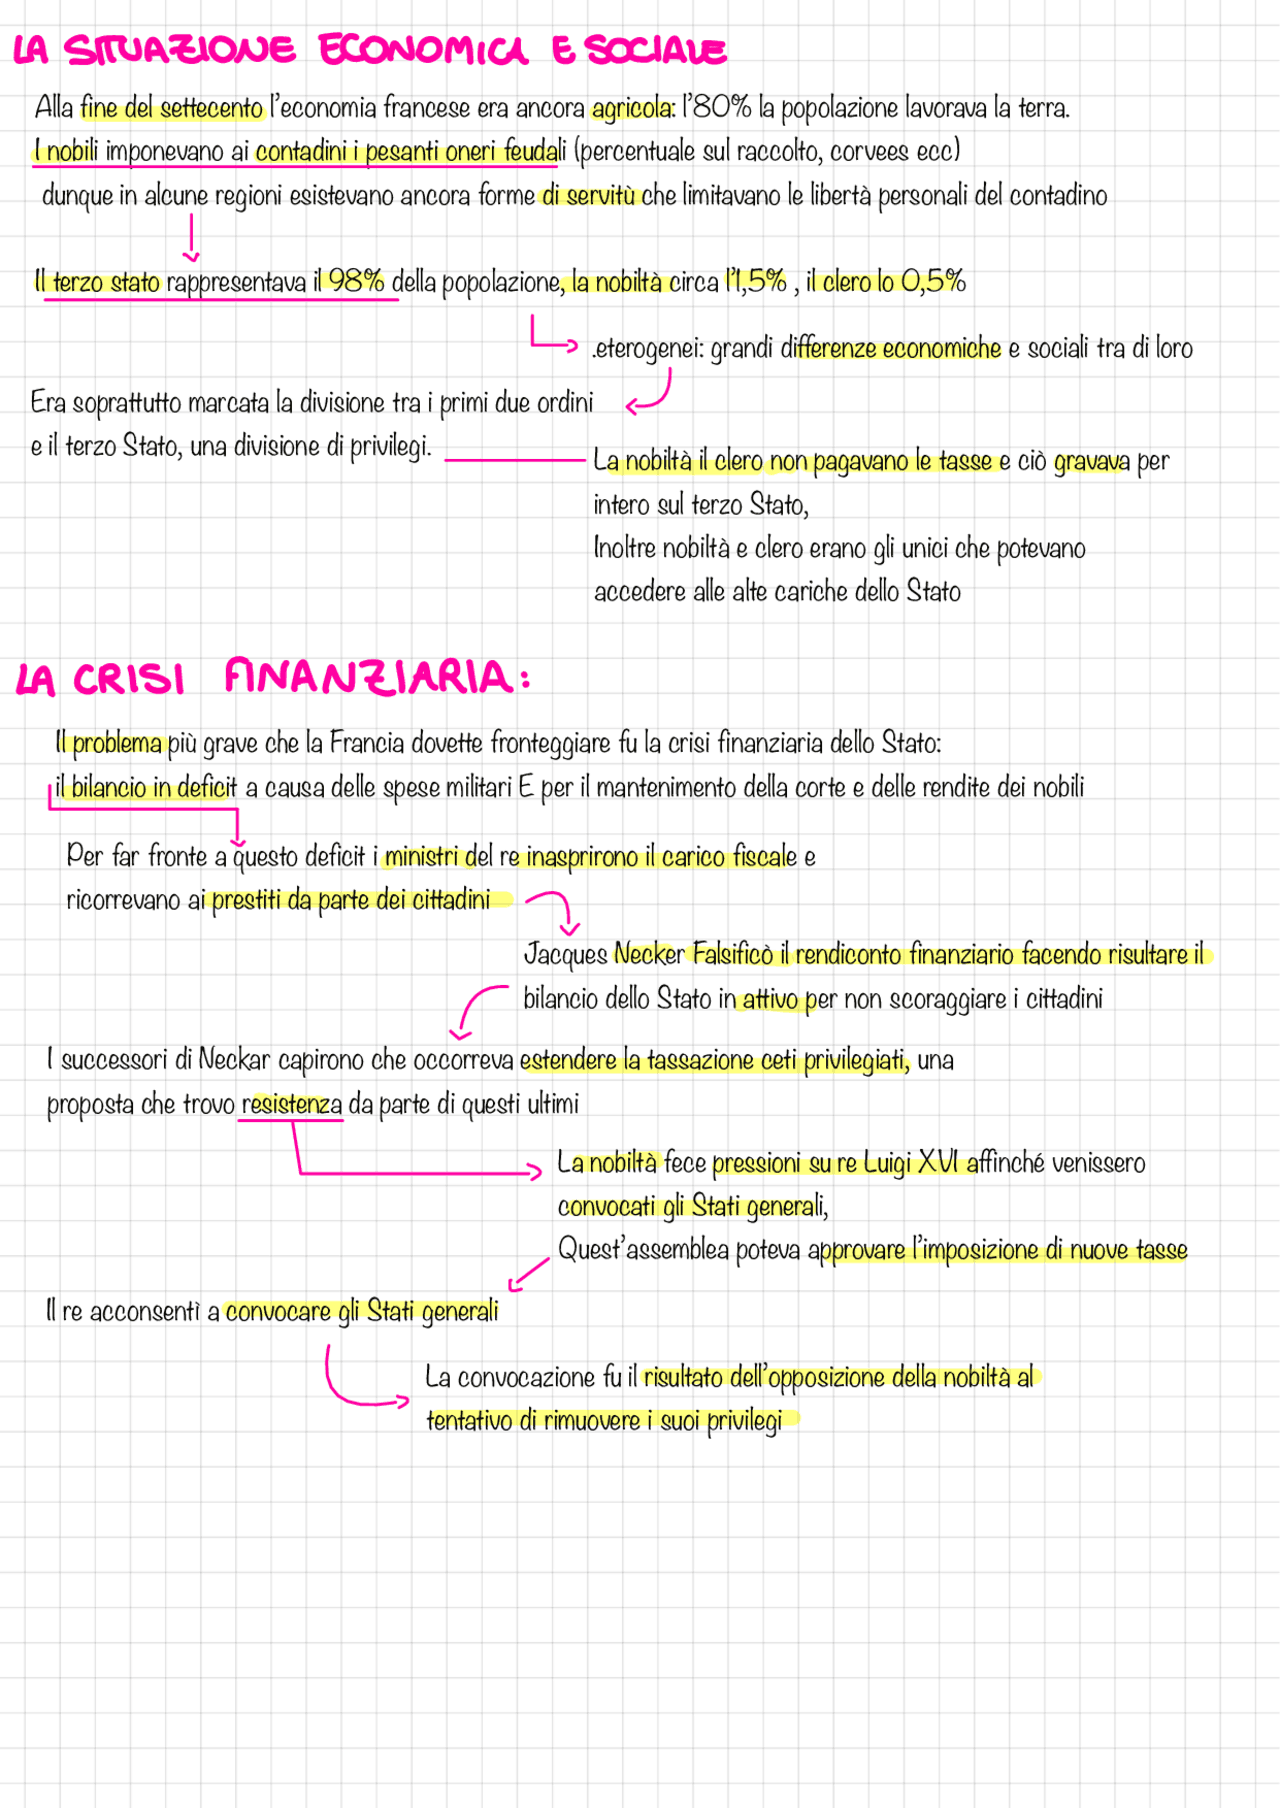 LA SITUAZIONE ECONOMICA E SOCIALE
Alla fine del settecento l'economia francese era ancora agricola: l'80% la popolazione lavorava la terra.
I nobili imponevano ai contadini i pesanti oneri feudali (percentuale sul raccolto, corvees ecc)
dunque in alcune regioni esistevano ancora forme di servitù che limitavano le libertà personali del contadino
Il terzo stato rappresentava il 98% della popolazione, la nobiltà circa l'1,5% , il clero lo 0,5%
.eterogenei: grandi differenze economiche e sociali tra di loro
Era soprattutto marcata la divisione tra i primi due ordini
e il terzo Stato, una divisione di privilegi.
La nobiltà il clero non pagavano le tasse e ciò gravava per
intero sul terzo Stato,
Inoltre nobiltà e clero erano gli unici che potevano
accedere alle alte cariche dello Stato
LA CRISI FINANZIARIA:
Il problema più grave che la Francia dovette fronteggiare fu la crisi finanziaria dello Stato:
il bilancio in deficit a causa delle spese militari E per il mantenimento della corte e delle rendite dei nobili
Per far fronte a questo deficit i ministri del re inasprirono il carico fiscale e
ricorrevano ai prestiti da parte dei cittadini
Jacques Necker Falsificò il rendiconto finanziario facendo risultare il
bilancio dello Stato in attivo per non scoraggiare i cittadini
I successori di Neckar capirono che occorreva estendere la tassazione ceti privilegiati, una
proposta che trovo resistenza da parte di questi ultimi
La nobiltà fece pressioni su re Luigi XVI affinché venissero
convocati gli Stati generali,
Quest'assemblea poteva approvare l'imposizione di nuove tasse
Il re acconsentì a convocare gli Stati generali
La convocazione fu il risultato dell'opposizione della nobiltà al
tentativo di rimuovere i suoi privilegi